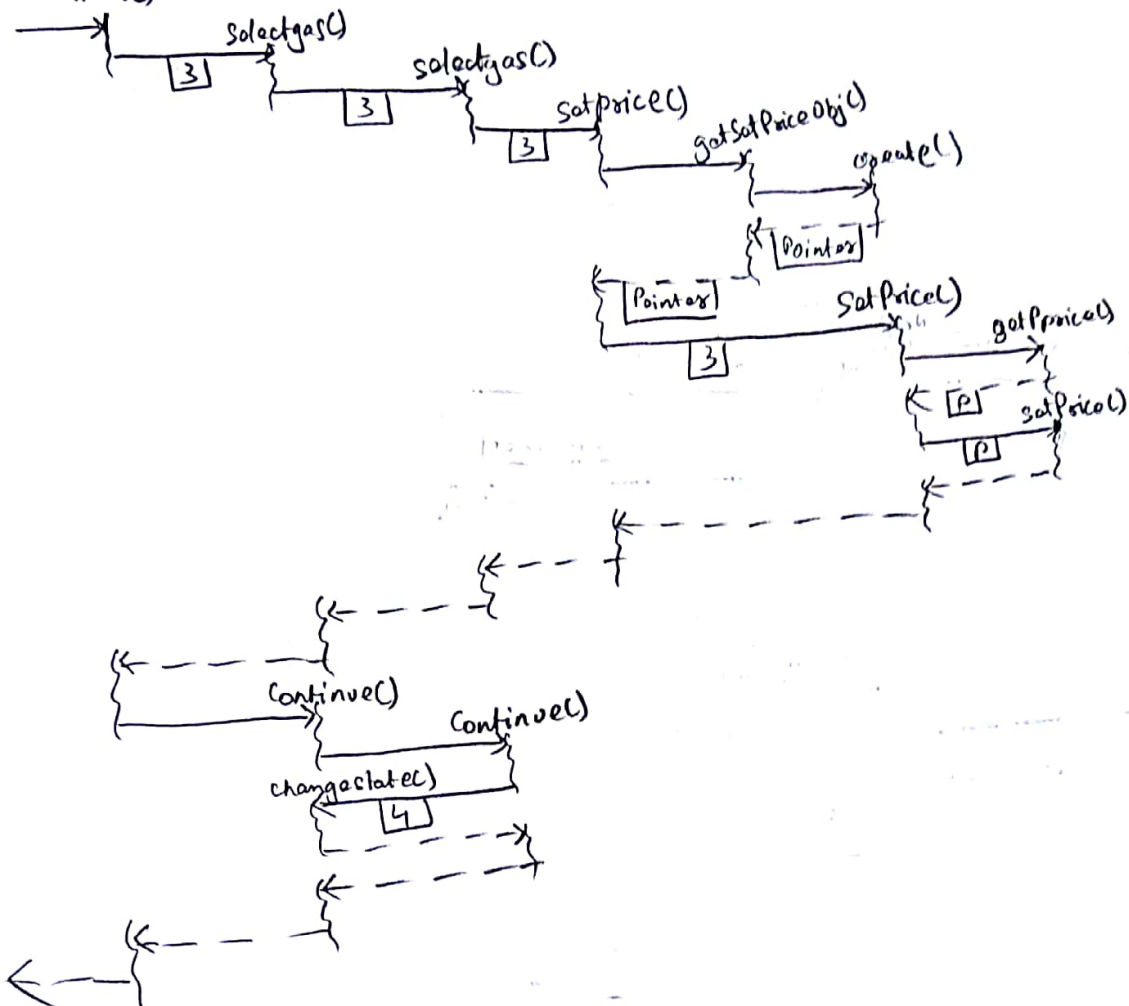 Selectgas()
3
selectgas()
3
SetPrice()
3
getSetPriceObj()
create()
Pointer
Pointer
SetPrice()
3
getPprice()
P
setPrice()
P
Continue()
Continue()
changestate()
4